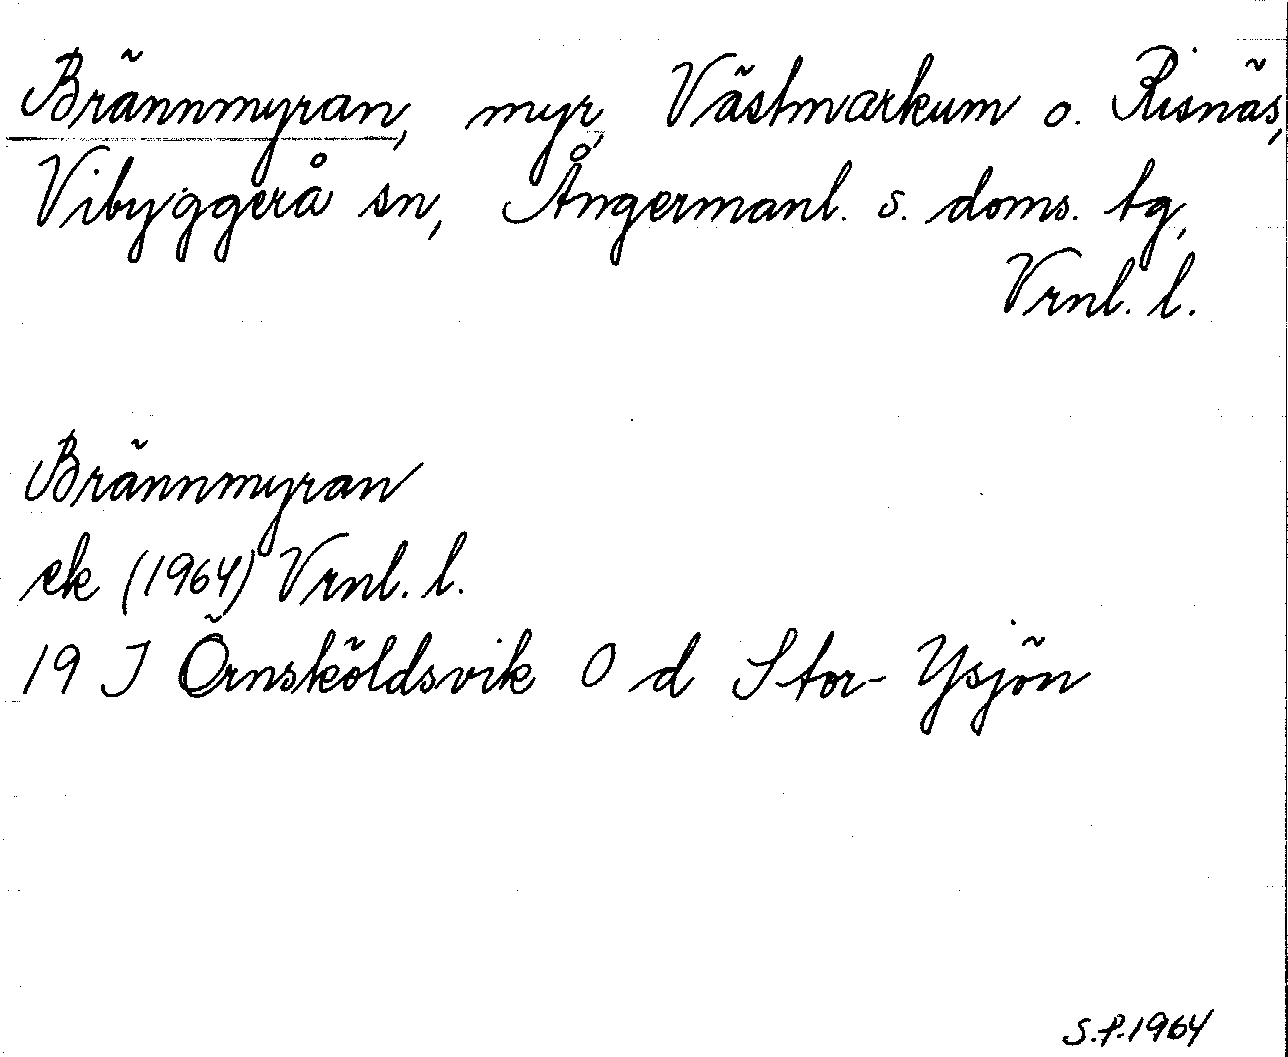 Brännmyran, myr, Västmarkum o. Risnäs,
Vibyggerå sn, Ångermanl. s. doms. tg,
Vrnl. l.
Brännmyran
ek (1964) Vrnl. l.
19 J Örnsköldsvik 0 d Stor-Ysjön
S.P.1964